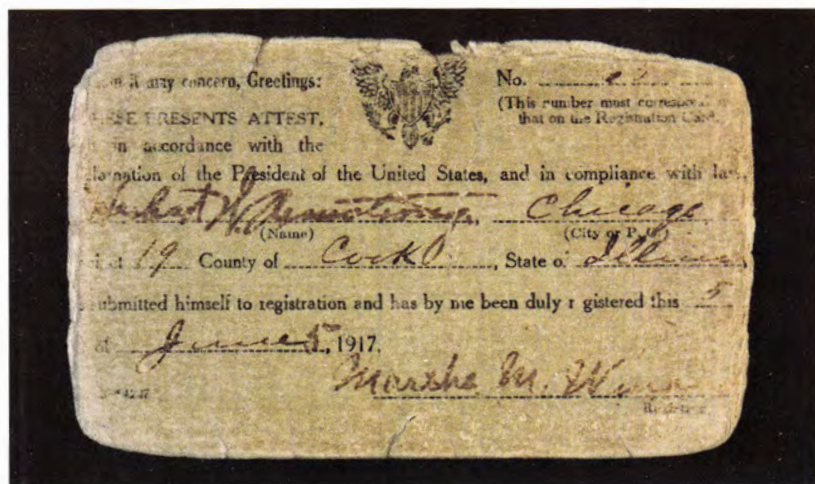 it may concern, Greetings:
No.
(This number must correspond
ESE PRESENTS ATTEST,
that on the Registration Card.
in accordance with the
lamation of the President of the United States, and in compliance with law,
Herbert W. Armstrong, Chicago
(Name) (City or P.O.)
19 County of Cook, State of Illinois
submitted himself to registration and has by me been duly r gistered this 5
of June 5, 1917.
Marsha M.
Registrar